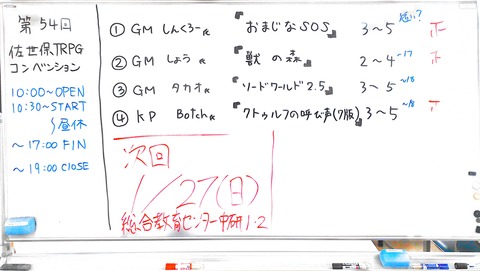 第54回
佐世保TRPG
コンベンション
10:00~OPEN
10:30~START
~昼休
~17:00 FIN
~19:00 CLOSE
① GM しんくろー氏 『おまじなSOS』 3~5 短い?
② GM しょう氏 『獣の森』 2~4 ~17
③ GM タカオ氏 『ソードワールド2.5』 3~5 ~18
④ KP Botch氏 『クトゥルフの呼び声(7版)』 3~5 ~18
次回
1/27(日)
総合教育センター中研1・2